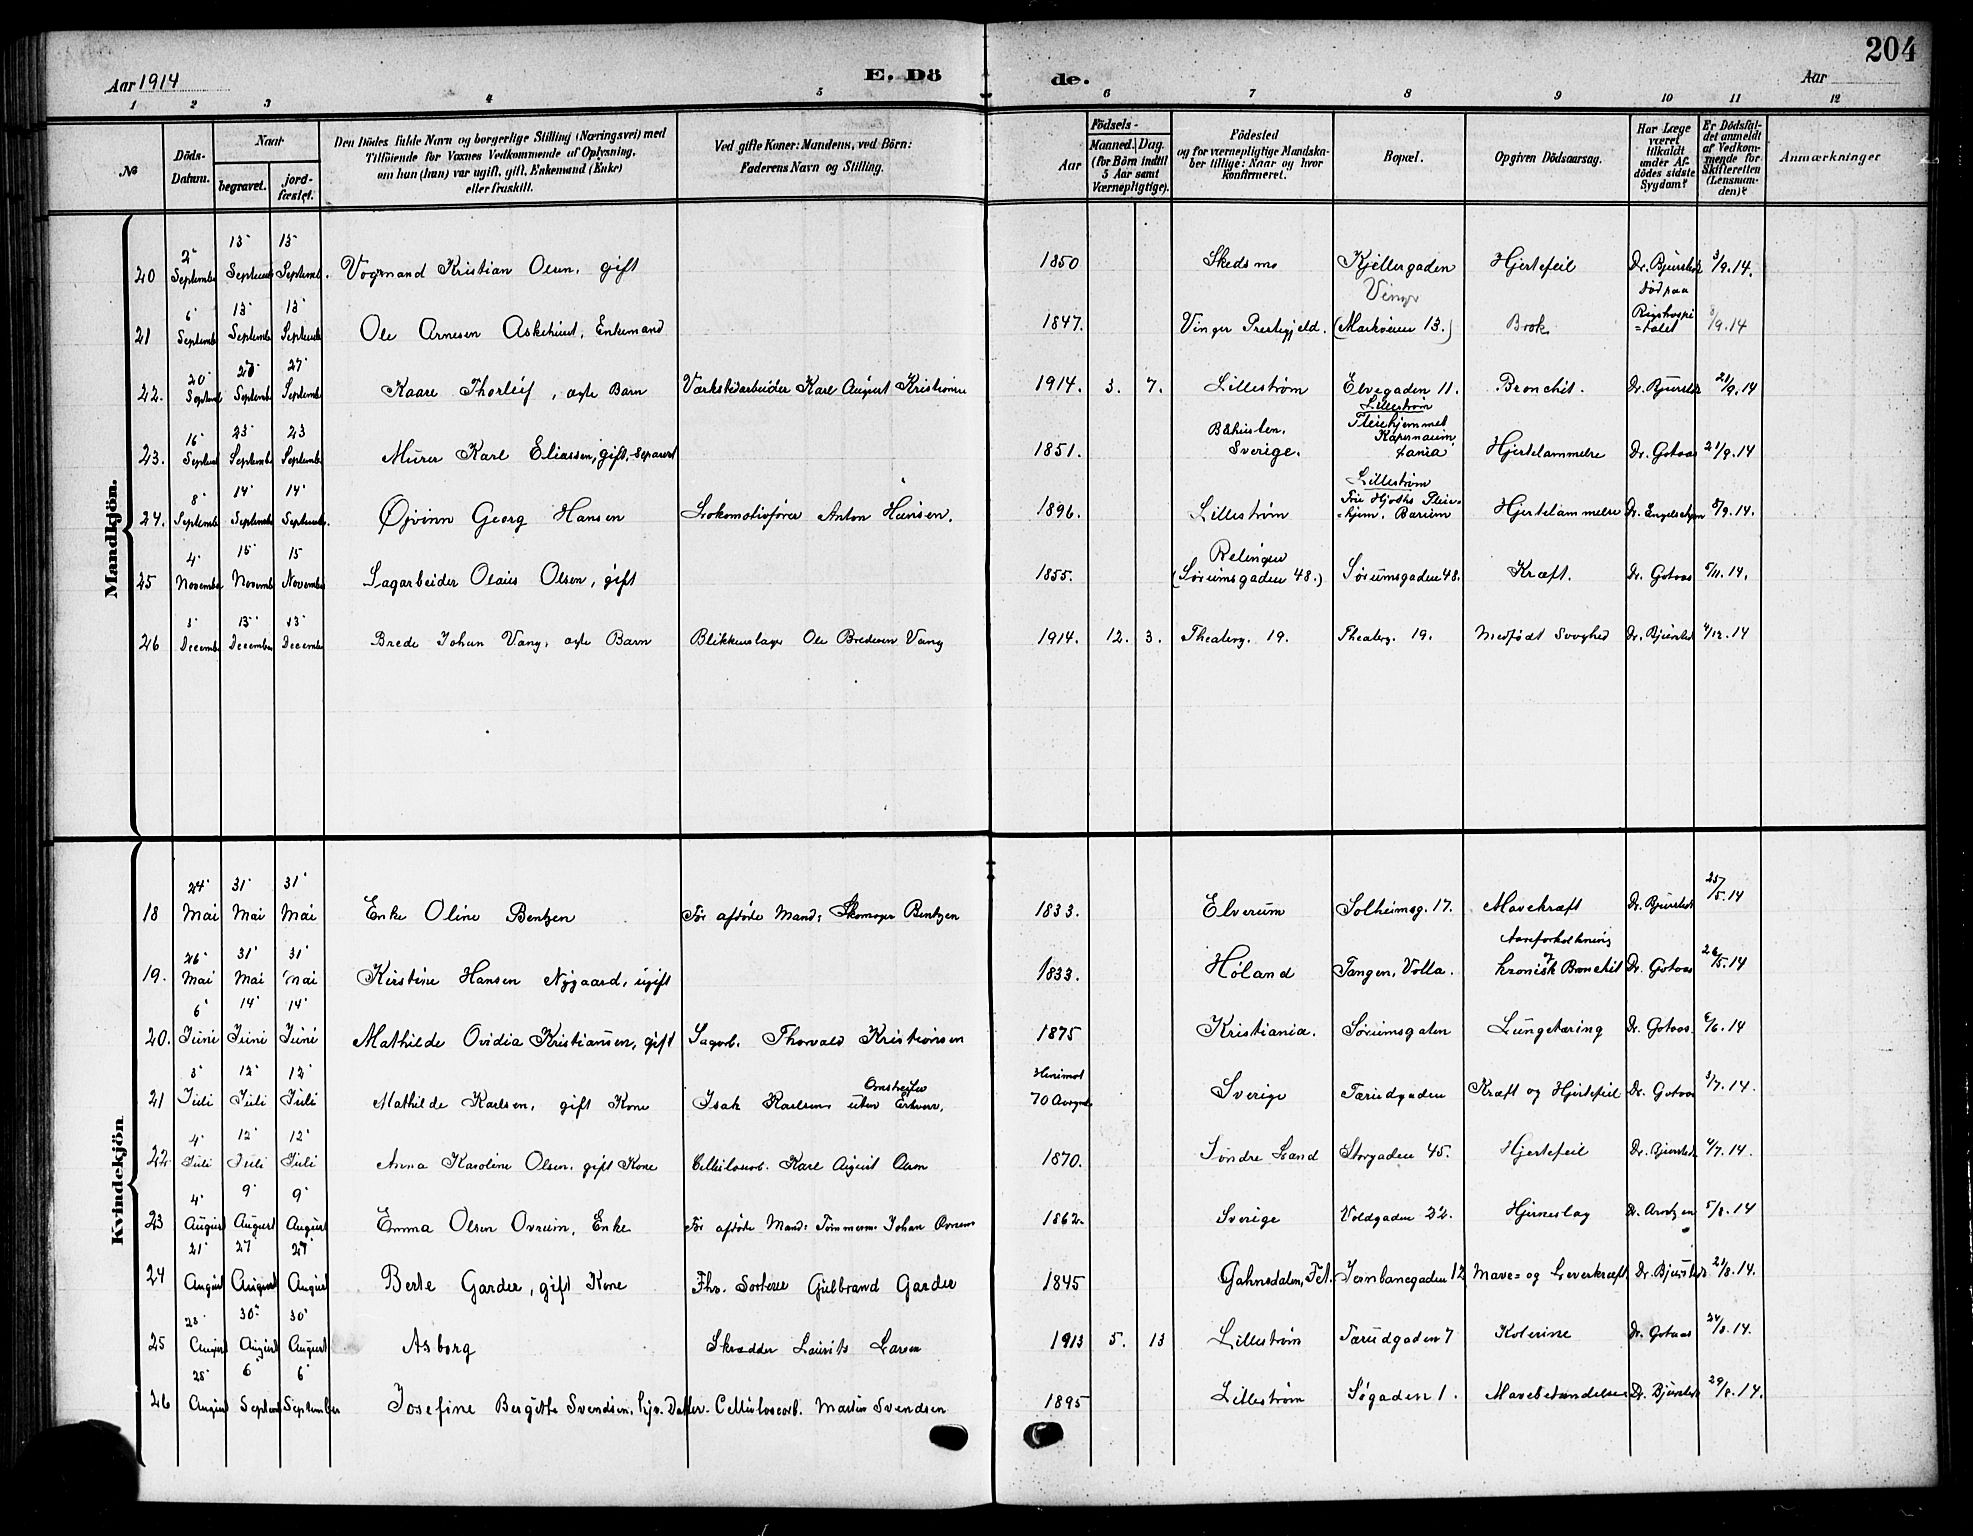 204
Aar 1914
E. Dö
de.
Aar
1 2 3 4 5 6 7 8 9 10 11 12
№
Döds-Datum.
Naar
begravet.
jord-fæstet.
Den Dödes fulde Navn og borgerlige Stilling (Næringsvei) med
Tilföiende for Voxnes Vedkommende af Oplysning,
om hun (han) var ugift, gift, Enkemand (Enke)
eller fraskilt.
Ved gifte Koner: Mandens, ved Börn:
Faderens Navn og Stilling.
Födsels-
Aar
Maaned. Dag.
(for Börn indtil
5 Aar samt
Værnepligtige).
Födested
og for værnepligtige Mandska-
ber tillige: Naar og hvor
konfirmeret.
Bopæl.
Opgiven Dödsaarsag.
Har Læge
været
tilkaldt
under Af-
dödes sidste
Sygdom?
Er Dödsfal-
det anmeldt
af Vedkom-
mende for
Skifteretten
(Lensman-
den)?
Anmærkninger
Mandkjön.
20 2' September 13' September 13' Septemb. Vognmand Kristian Olsen, gift 1850 Skedsmo Kjellergaden Hjertefeil Dr. Bjursted 3/9.14.
21 6' September 13' September 13' September Ole Arnesen Askehind, Enkemand 1847. Vinger Prestegjeld. Vinger (Markveien 13.) Brok Död paa Rigshospi=talet 8/9 14
22. 20' September 27' September 27' September Kaare Thorleif, ægte Barn Værkstedarbeider Karl August Kristiansen 1914. 3. 7. Lilleström Elvegaden 11. Bronchit. Dr. Bjursted 21/9.14
23. 16' September 23' September 23 September Murer Karl Eliassen, gift, separert 1851. Sverige. Lilleström Pleiehjemmet Kapernaum Hjertelammelse Dr. Gotaas 21/9.14
24. 8' September 14' September 14' September. Øjvinn Georg Hansen Lokomotivförer Anton Hansen. 1896. Lilleström Lilleström Hjertelammelse 8/9.14.
25 4' November 15' November 15 November Sagarbeider Olaus Olsen, gift 1855. Relingen (Sørumsgaden 48.) Sørumsgaden 48. Kræft. Dr. Gotaas 5/11.14.
26 December 13' December 13' December Brede Johan Vang, ægte Barn Blikkenslager Ole Bredesen Vang 1914. 12. 3. Theaterg. 19. Theaterg. 19. Medfödt Svaghed Dr. Bjursted 4/12.14
Kvindekjön
18 24' Mai 31' Mai 31' Mai Enke Oline Bentzen Før afdöde Mand: Skomager Bentzen 1833. Elverum Solheimsg. 17. Mavekræft Dr. Bjursted 25/5.14
19. 26' Mai 31' Mai 31' Mai Kirstine Hansen Nygaard, ugift 1833. Höland Tangen, Volla. Aareforkalkning og kronisk Bronchit Dr. Gotaas 26/5.14
20. 6' Juni 14' Juni 14' Juni Mathilde Ovidia Kristiansen, gift Sagarb. Thorvald Kristiansen 1875 Kristiania. Sörumsgaten Lungetæring Dr. Gotaas. 6/6.14
21 3' Juli 12' Juli 12' Juli Mathilde Karlsen, gift Kone Isak Karlsen Omstreifer uten Erhverv, Henimot 70 Aar Sverige Tærudgaden Kræft og Hjertefeil Dr. Gotaas 3/7.14.
22 4' Juli 12' Juli 12' Juli Anna Karoline Olsen, gift Kone Cellulosearb. Karl August Olsen 1870. Söndre Land Storgaden 45. Hjertefeil Dr. Bjursted 4/7.14.
23 4' August 9' August 9' August Emma Olsen Ovrum, Enke Før afdöde Mand: Tömmerm. Johan 1862. Sverige Voldgaden 22. Hjerneslag Dr. Arntzen 5/8.14
24 21' August 27' August 27' August Berte Garder, gift Kone Fhv. Sorterer Gulbrand Garder 1845 Gahnsdalen, Fet. Jernbanegaden 12 Mave= og Leverkræft Dr. Bjursted 21/8.14.
25 23' August 30' August 30' August Asborg Skrædder Laurits Larsen 1913 5. 13 Lilleström Tærudgaden 7 Kolerine Dr. Gotaas 24/8.14.
26 28' August 6' September 6' September Josefine Bergitte Svendsen, Cellulosearb. Martin Svendsen 1895 Lilleström Søgaden 1. Mavebetændelse Dr. Bjursted 29/8.14.